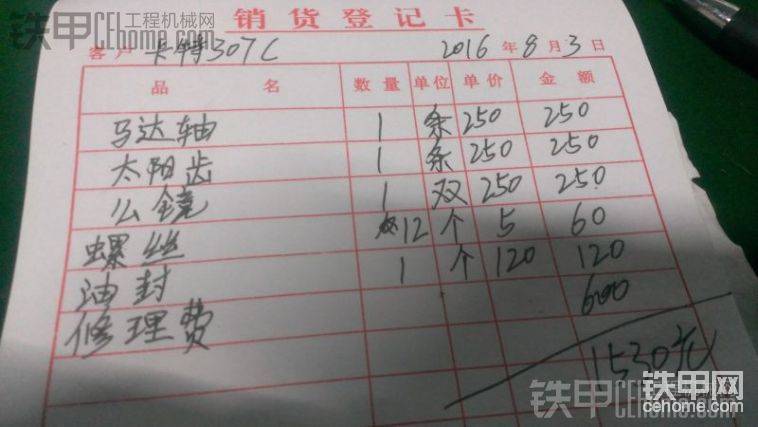 铁甲 工程机械网 CEhome.com
销货登记卡
客户 卡特307C 2016年8月3日
品名 数量 单位 单价 金额
马达轴 1 条 250 250
太阳齿 1 条 250 250
么镜 1 双 250 250
螺丝 12 个 5 60
油封 1 个 120 120
修理费 600
1530元
铁甲 CEhome.com
铁甲网
cehome.com